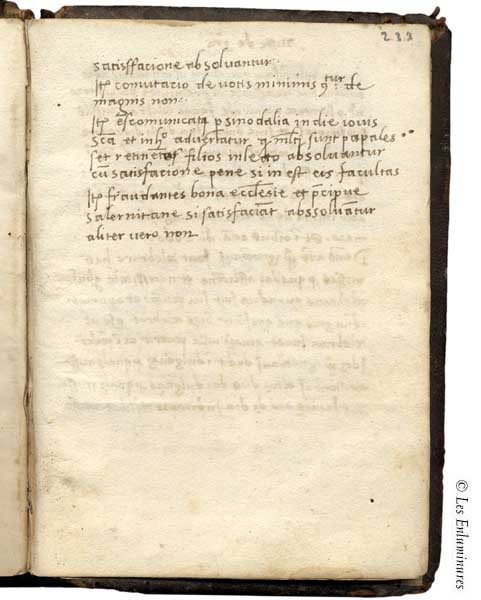 232
satisffacione absolvantur.
Itẽ comutacio de votis minimis ꝯtur de
magnis non.
Itẽ ẽscomunicatj p sinodalia in die iovis
Scã et in hͦ advertatur ꝙ mltj sunt papales
set filios in lecto absolvantur
cũ satisfacione pene si in est eis facultas
Itẽ fraudantes bona ecclesie et pͥcipue
salernitane si satisfaciãt abssolvãtur
aliter vero non
© Les Enluminures